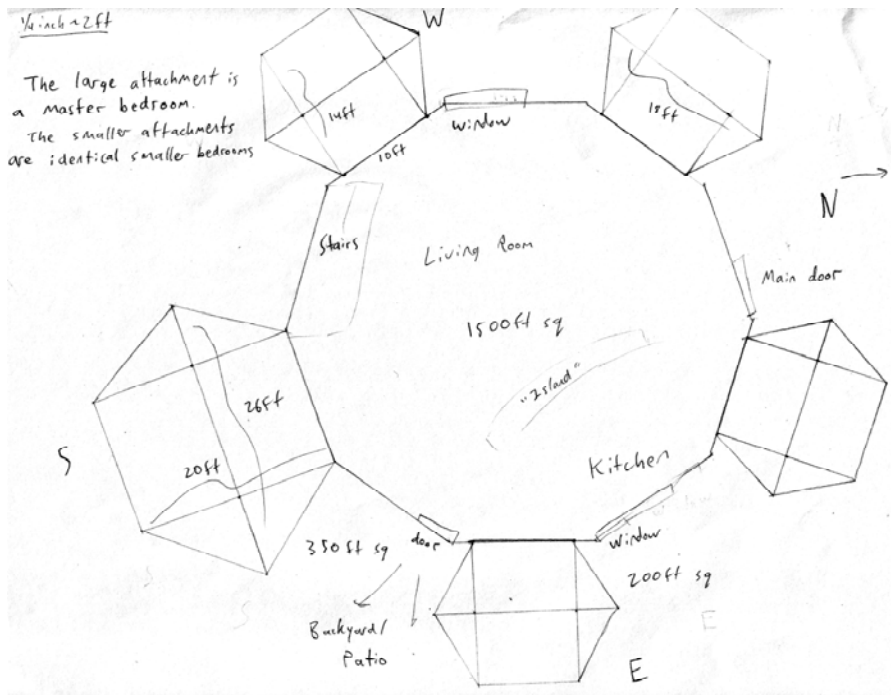 1/4 inch = 2ft
W
The large attachment is
a master bedroom.
The smaller attachments
are identical smaller bedrooms
14ft
18ft
window
10ft
N
Stairs
Living Room
Main door
1500ft sq
"Island"
26ft
20ft
S
Kitchen
350ft sq
door
window
200ft sq
Backyard/
Patio
E
E